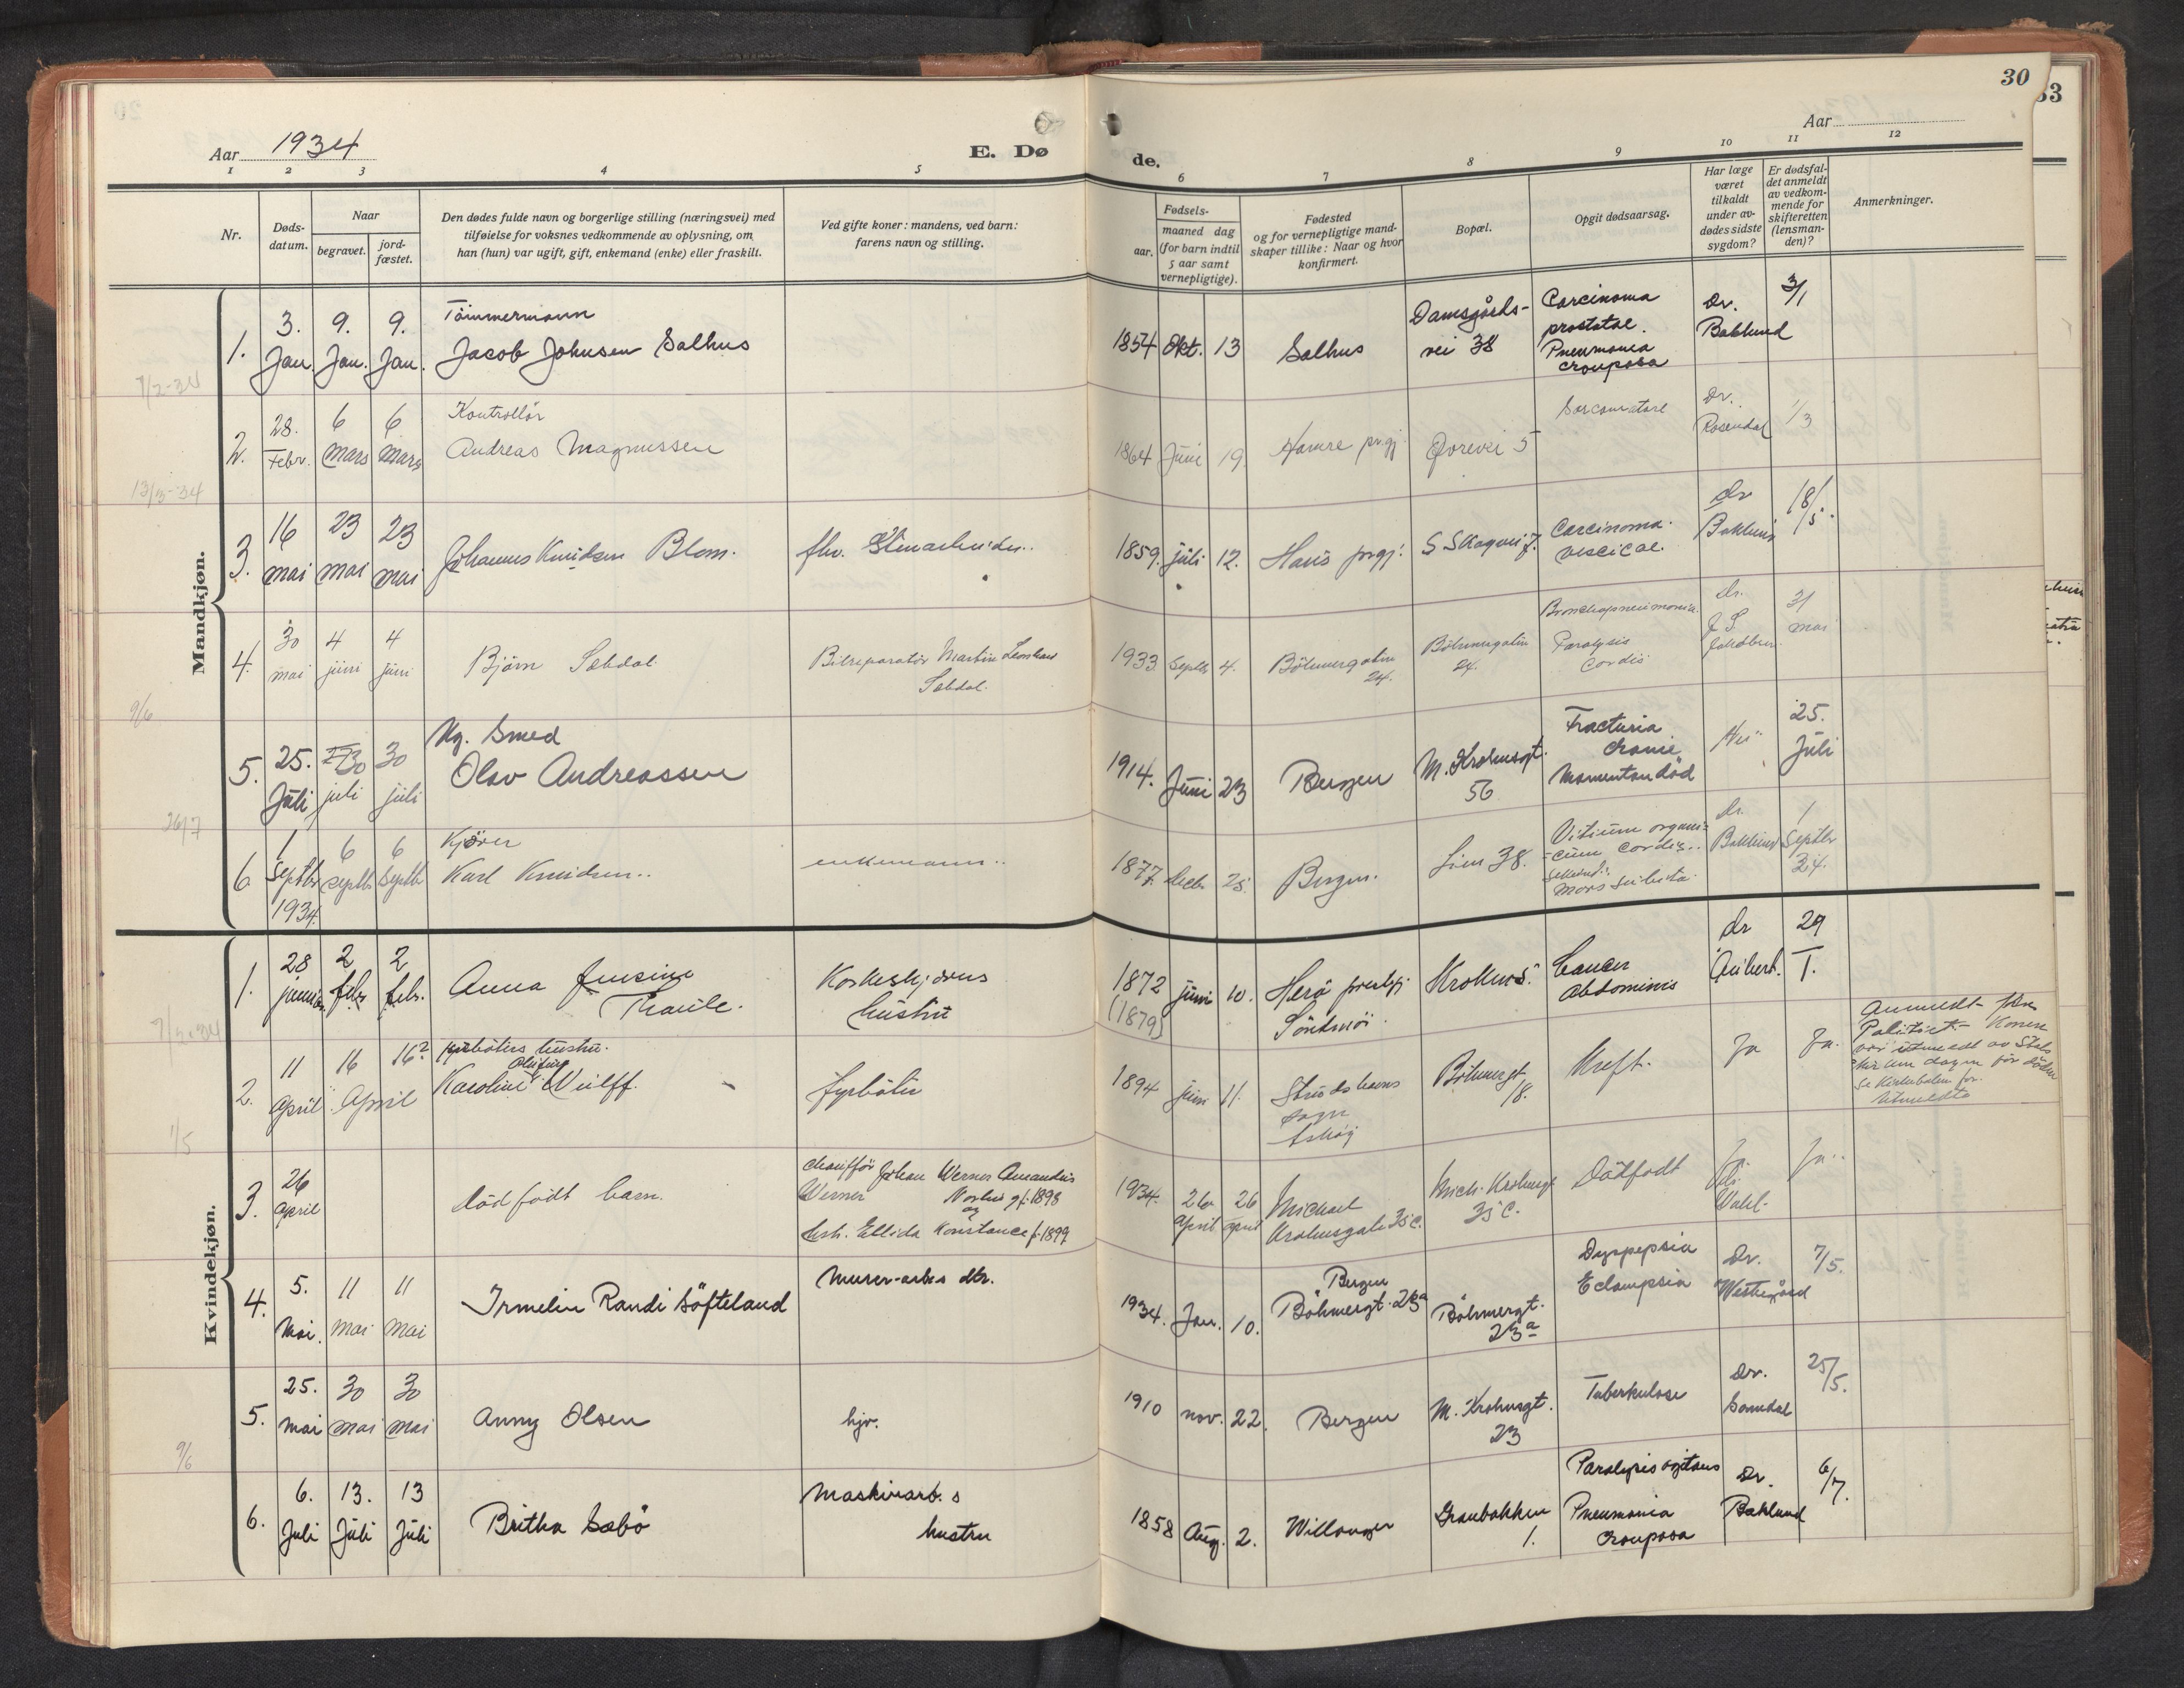 30
33
Aar 1934
E. Dø
de.
Aar
1 2 3 4 5
6 7 8 9 10 11 12
Nr.
Døds-
datum.
Naar
begravet.
jord-
fæstet.
Den dødes fulde navn og borgerlige stilling (næringsvei) med
tilføielse for voksnes vedkommende av oplysning, om
han (hun) var ugift, gift, enkemand (enke) eller fraskilt.
Ved gifte koner: mandens, ved barn:
farens navn og stilling.
Fødsels-
aar.
maaned dag
(for barn indtil
5 aar samt
vernepligtige).
Fødested
og for vernepligtige mand-
skaper tillike: Naar og hvor
konfirmert.
Bopæl.
Opgit dødsaarsag.
Har læge
været
tilkaldt
under av-
dødes sidste
sygdom?
Er dødsfal-
det anmeldt
av vedkom-
mende for
skifteretten
(lensman-
den)?
Anmerkninger.
Mandkjøn.
1.
3. Jan.
9. Jan.
9. Jan.
Tömmermann
Jacob Johnsen Salhus
1854 Okt. 13
Salhus
Damsgårds-
vei 38
Carcinoma
prostatae.
Pneumonia
crouposa
Dr.
Baklund
3/1
7/2-34
2.
28. Febr.
6 Mars
6 Mars
Kontrollör
Andreas Magnussen
1864 Juni 19
Hamre prgj.
Øvrevei 5
Dr.
Rosendal
1/3
13/3-34
3.
16 mai
23 mai
23 mai
Johannes Knudsen Blom.
1859. juli 12.
Haus prgj.
Carcinoma
vescicae.
dr
Baklund
18/5.
4.
30 mai
4 juni
4 juni
Björn Sebdal
Bilreparatör Martin Leonhard
Sebdal.
1933 Septb 4.
Böhmergaten
24.
Böhmergaten
24.
Bronchopneumonia
Paralysis
Cordis
Dr.
31
mai
9/6
5.
25. Juli
30 juli
30 juli
Ug. Smed
Olav Andreassen
1914. Juni 23
Bergen
M. Krohnsgt.
56
Fracturia
cranie
Momentan död
Nei
25.
Juli
26/7
6
1 Septbr 1934.
6 septb
6 septbr
Kjörer
Karl Knudsen..
enkemann..
1877 decbr 25
Bergen.
Lien 38.
Vitium organi-
cum cordis..
Mors subita.
dr.
Baklund
1
Septbr
34.
Kvindekjøn.
1.
28 januar
2 febr
2 febr.
Anna Jensine
Thaule.
hustru
1872 juni 10.
(1879)
Herö prestgj.
Söndmör.
Krohns.
Cancer
abdominis
dr
Aubert.
29
1.
7/2-34
2.
11 April
16 April
16
fyrböters hustru.
Karoline Olufine Wulff.
fyrböter
1894 juni 11.
Böhmergt
18.
Kreft.
Ja
Ja.
1/5
3.
26 April
Död födt barn.
chaufför Johan Werner Amandus
Werner
og
hustr. Ellida Konstance f. 1899
1934. 26 April 26 April
Michael
Krohnsgate 35 c.
Mich. Krohnsgt
35 c.
Dödfödt
Ja..
4.
5. Mai.
11 Mai
11 Mai
Irmelin Randi Söfteland
Murer-arbs dtr.
1934. Jan. 10.
Bergen
Böhmergt. 23a
Böhmergt.
23a
Dyspepsia
Eclampsia
Dr.
Westergård
7/5.
5.
25. mai
30 mai
30 mai
Anny Olsen
hjv.
1910 nov. 22.
Bergen
M. Krohnsgt.
23
Tuberkulose
Dr.
Samdal
25/5.
9/6
6.
6. Juli
13. Juli
13 Juli
Britha Sæbö
Maskinarb.s
hustru
1858 Aug. 2.
Willanger
Graubakken
1.
Paralysis agitans
Pneumonia
crouposa
Dr.
Baklund
6/7.